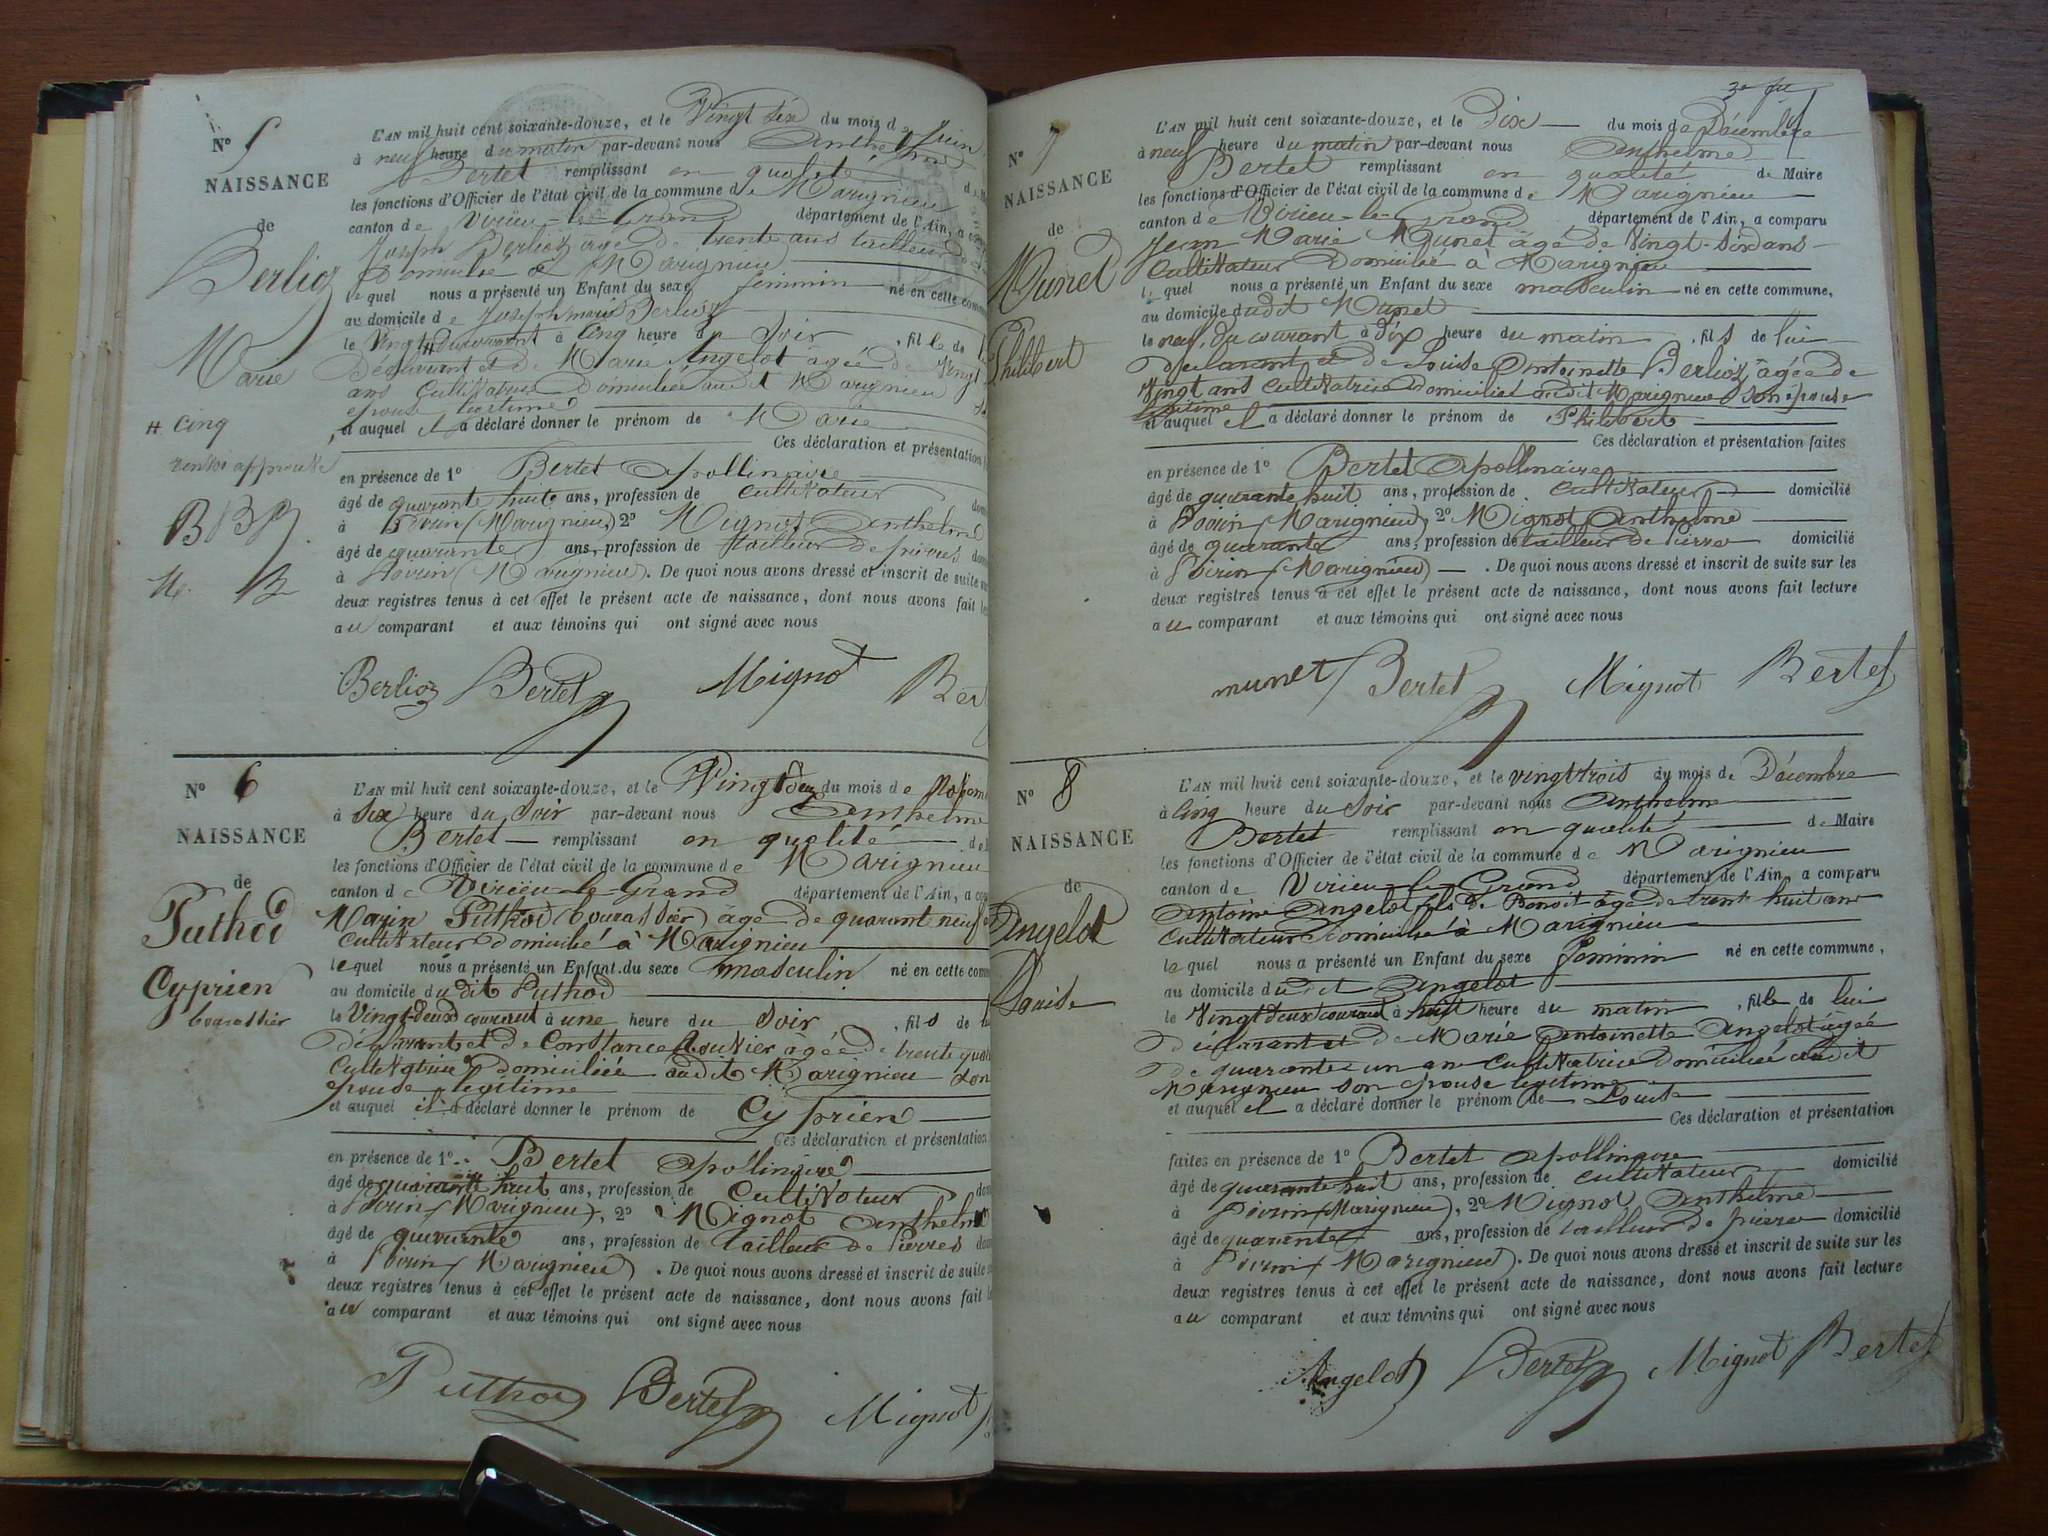 N° 5
NAISSANCE
de
Berlioz
Marie
# cinq
renvoi approuvé
B B B
M. B
L'AN mil huit cent soixante-douze, et le Vingt six du mois de Juin
à neuf heure du matin par-devant nous Anthelme
Bertet remplissant en qualité de M
les fonctions d'Officier de l'état civil de la commune de Marignieu
canton de Virieu-le-Grand département de l'Ain, a
Joseph Berlioz agé de trente ans tailleur
Domicilié à Marignieu
le quel nous a présenté un Enfant du sexe féminin né en cette comm
au domicile de Joseph marie Berlioz
le Vingt # du courant à cinq heure du Soir, fille de
Déclarant et de Marie Angelot agée de Vingt
ans Cultivatrice Domiciliée audit Marignieu
epouse legitime
et auquel il a déclaré donner le prénom de Marie
Ces déclaration et présentation
en présence de 1° Bertet Apollinaire
âgé de quarante huit ans, profession de Cultivateur
à Poirin (Marignieu), 2° Mignot Anthelme
âgé de quarante ans, profession de tailleur de pierres
à Poirin (Marignieu). De quoi nous avons dressé et inscrit de suite
deux registres tenus à cet effet le présent acte de naissance, dont nous avons fait
au comparant et aux témoins qui ont signé avec nous
Berlioz Bertet Mignot Ber
N° 6
NAISSANCE
de
Puthod
Cyprien
bourassier
L'AN mil huit cent soixante-douze, et le Vingt deux du mois de Novem
à Six heure du Soir par-devant nous Anthelme
Bertet remplissant en qualité de
les fonctions d'Officier de l'état civil de la commune de Marignieu
canton de Virieu-le-Grand département de l'Ain, a
Marin Puthod (bourassier) âgé de quarant neuf
Cultivateur domicilié à Marignieu
le quel nous a présenté un Enfant du sexe masculin né en cette comm
au domicile dudit Puthod
le Vingt-deux courant à une heure du Soir, fils de
déclarant et de Constance âgée de trente
Cultivatrice domiciliée audit Marignieu son
epouse legitime
et auquel il a déclaré donner le prénom de Cyprien
Ces déclaration et présentation
en présence de 1° Bertet Apolinaire
âgé de quarante huit ans, profession de Cultivateur
à Poirin (Marignieu), 2° Mignot Anthelme
âgé de quarante ans, profession de tailleur de Pierres
à Poirin (Marignieu). De quoi nous avons dressé et inscrit de suite
deux registres tenus à cet effet le présent acte de naissance, dont nous avons fait
au comparant et aux témoins qui ont signé avec nous
Puthod Bertet Mignot
N° 7
NAISSANCE
de
Munet
Philibert
L'AN mil huit cent soixante-douze, et le Dix du mois de Décembre
à neuf heure du matin par-devant nous Anthelme
Bertet remplissant en qualité de Maire
les fonctions d'Officier de l'état civil de la commune de Marignieu
canton de Virieu-le-Grand département de l'Ain, a comparu
Jean Marie Munet âgé de Vingt-Six ans
Cultivateur Domicilié à Marignieu
le quel nous a présenté un Enfant du sexe masculin né en cette commune,
au domicile dudit Munet
le neuf du courant à dix heure du matin, fils de lui
déclarant et de Louise Antoinette Berlioz âgée de
Vingt ans Cultivatrice domiciliée audit Marignieu Son épouse
legitime
et auquel il a déclaré donner le prénom de Philibert
Ces déclaration et présentation faites
en présence de 1° Bertet Apollinaire
âgé de quarante huit ans, profession de Cultivateur domicilié
à Poirin (Marignieu), 2° Mignot Anthelme
âgé de quarante ans, profession de tailleur de Pierre domicilié
à Poirin (Marignieu). De quoi nous avons dressé et inscrit de suite sur les
deux registres tenus à cet effet le présent acte de naissance, dont nous avons fait lecture
au comparant et aux témoins qui ont signé avec nous
munet Bertet Mignot Bertet
N° 8
NAISSANCE
de
Angelot
Louise
L'AN mil huit cent soixante-douze, et le vingt trois du mois de Décembre
à cinq heure du Soir par-devant nous Anthelme
Bertet remplissant en qualité de Maire
les fonctions d'Officier de l'état civil de la commune de Marignieu
canton de Virieu-le-Grand département de l'Ain, a comparu
Antoine Angelot fils de Benoit âgé de trent huit ans
Cultivateur domicilié à Marignieu
le quel nous a présenté un Enfant du sexe Féminin né en cette commune,
au domicile dudit Angelot
le Vingt deux courant à huit heure du matin, fille de lui
déclarant et de Marie Antoinette Angelot âgée
de quarante un ans Cultivatrice domiciliée audit
Marignieu son épouse legitime
et auquel il a déclaré donner le prénom de Louise
Ces déclaration et présentation
faites en présence de 1° Bertet Apollinaire
âgé de quarante huit ans, profession de Cultivateur domicilié
à Poirin (Marignieu), 2° Mignot Anthelme
âgé de quarante ans, profession de tailleur de pierre domicilié
à Poirin (Marignieu). De quoi nous avons dressé et inscrit de suite sur les
deux registres tenus à cet effet le présent acte de naissance, dont nous avons fait lecture
au comparant et aux témoins qui ont signé avec nous
Angelot Bertet Mignot Bertet